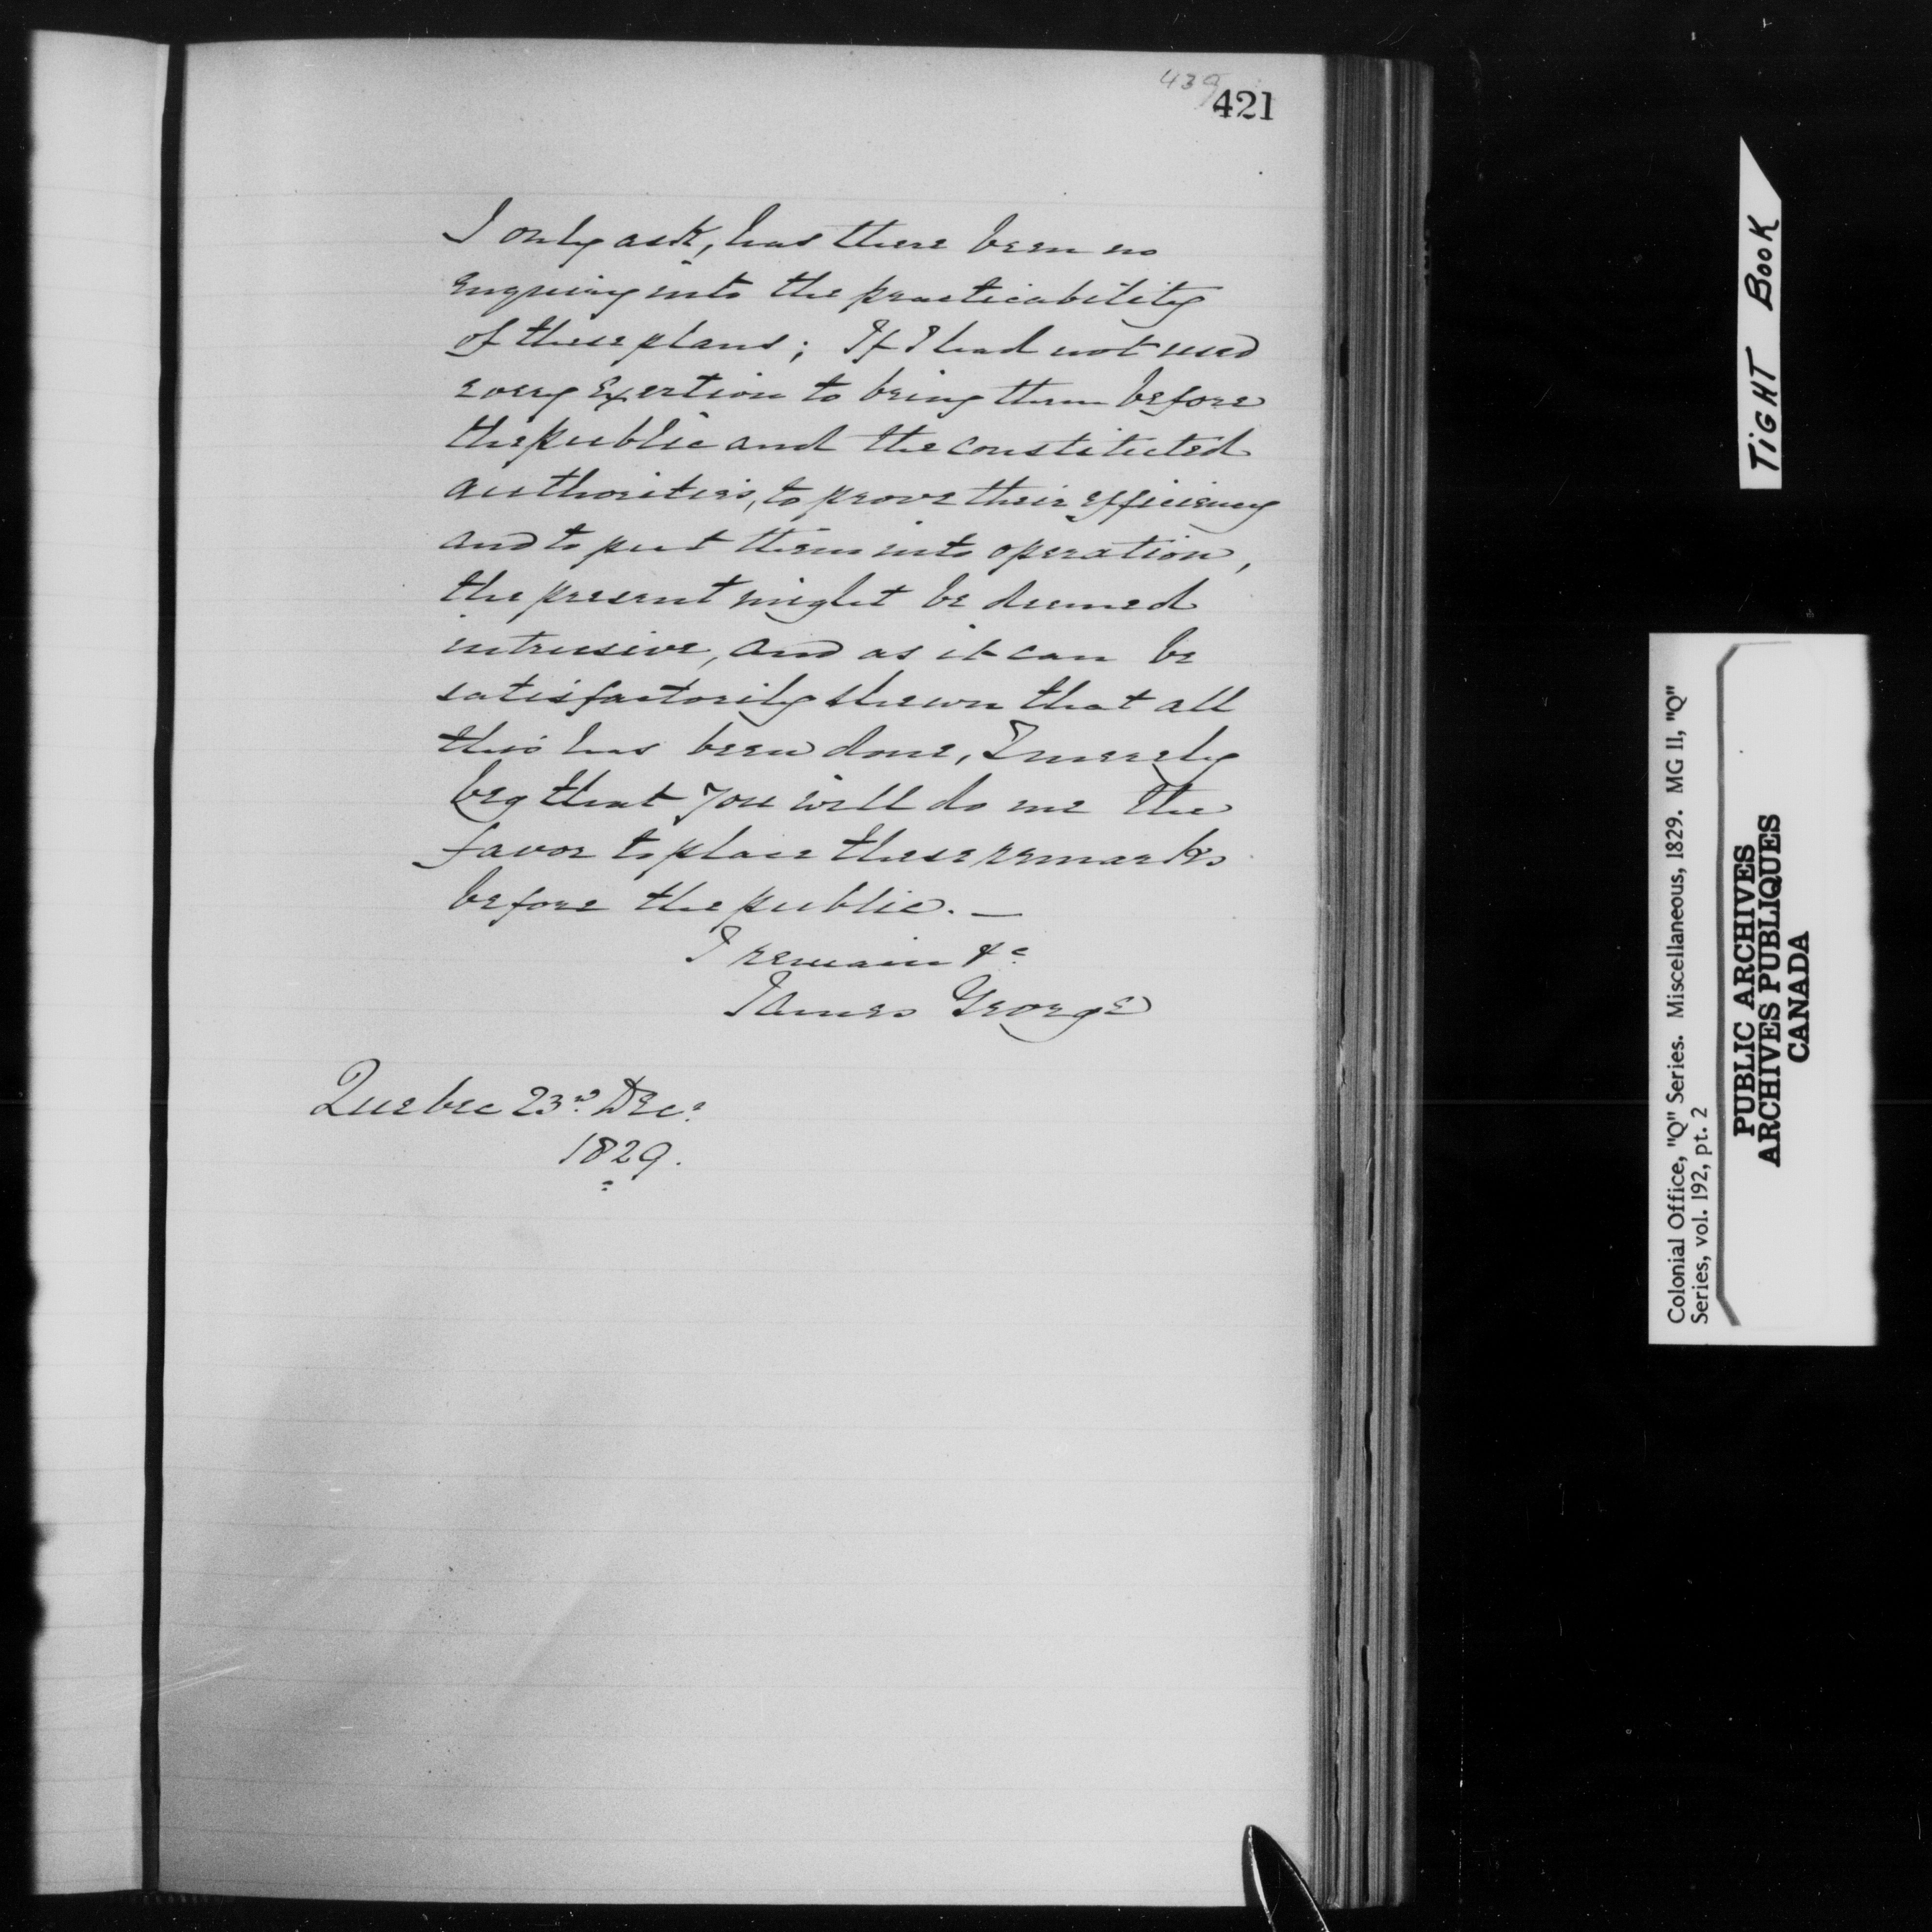 439
421
I only ask, has there been no
enquiry into the practicability
of these plans; If I had not used
every Exertion to bring them before
the public and the constituted
authorities, to prove their efficiency
and to put them into operation,
the present might be deemed
intrusive, and as it can be
satisfactorily shewn that all
this has been done, I merely
beg that you will do me the
favor to place these remarks
before the public. —
I remain &c
James George
Quebec 23rd Decr
1829.
TIGHT BOOK
Colonial Office, "Q" Series. Miscellaneous, 1829. MG 11, "Q"
Series, vol. 192, pt. 2
PUBLIC ARCHIVES
ARCHIVES PUBLIQUES
CANADA